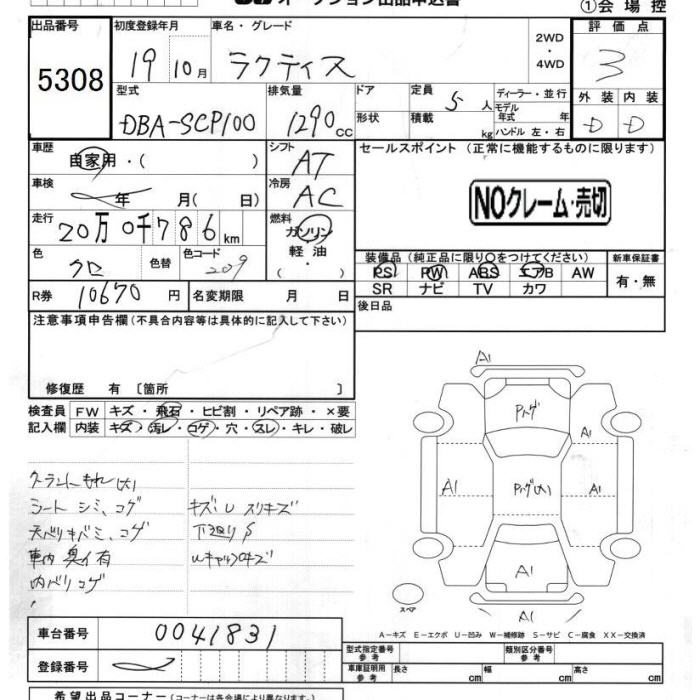 オークション出品申込書
①会場控
出品番号 初度登録年月 車名・グレード 2WD・4WD 評価点
5308 19 10月 ラクティス 3
型式 排気量 ドア 定員 5人 ディーラー・並行 外装 内装
DBA-SCP100 1290cc 形状 積載 kg モデル年式 年 ハンドル 左・右 D D
車歴 自家用・( ) シフト AT セールスポイント (正常に機能するものに限ります)
車検 年 月( 日) 冷房 AC NOクレーム・売切
走行 20万 0千786km 燃料 ガソリン 軽油 ・( )
色 クロ 色替 色コード 209 装備品(純正品に限り○をつけてください) 新車保証書
PS PW ABS エアB AW 有・無
SR ナビ TV カワ
R券 10670円 名変期限 月 日 後日品
注意事項申告欄(不具合内容等は具体的に記入して下さい)
修復歴 有 [箇所 ]
検査員 FW キズ・飛石・ヒビ割・リペア跡・×要
記入欄 内装 キズ・汚レ・コゲ・穴・スレ・キレ・破レ
シート シミ、コゲ キズU スリキズ
天バリキバミ、コゲ 下廻りS
車内 臭イ有
内バリコゲ
A1
Pハゲ
A1
A1 Pハゲ(大) A1
A1
スペア A1
A-キズ E-エクボ U-凹み W-補修跡 S-サビ C-腐食 XX-交換済
車台番号 0041831 型式指定番号 参考 類別区分番号 参考
登録番号 車庫証明用 参考 長さ cm 幅 cm 高さ cm
希望出品コーナー(コーナーは各会場により異なります)